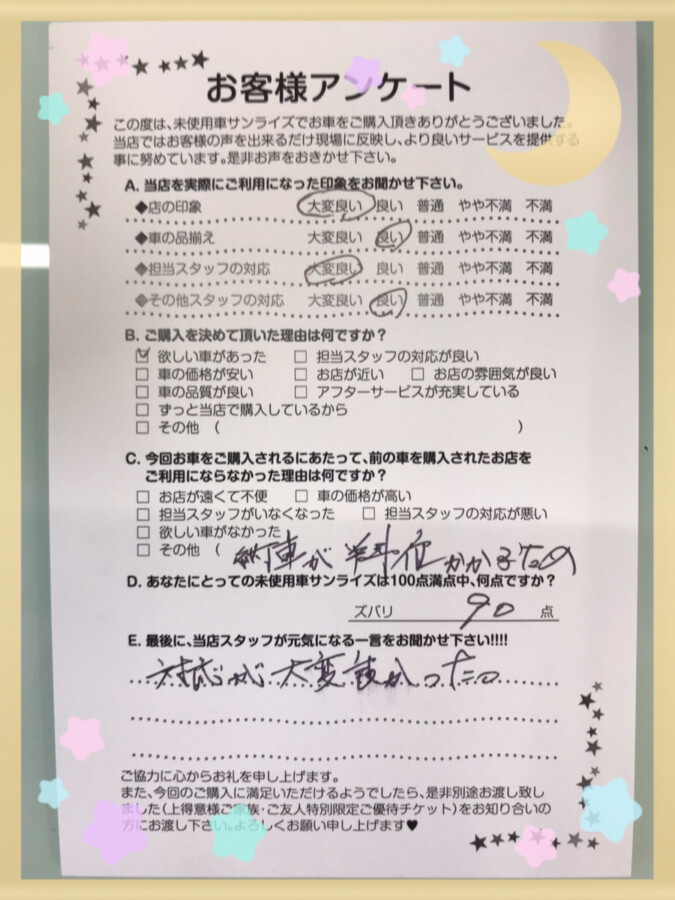 お客様アンケート
この度は、未使用車サンライズでお車をご購入頂きありがとうございました。
当店ではお客様の声を出来るだけ現場に反映し、より良いサービスを提供する
事に努めています。是非お声をおきかせ下さい。
A. 当店を実際にご利用になった印象をお聞かせ下さい。
◆店の印象 大変良い 良い 普通 やや不満 不満
◆車の品揃え 大変良い 良い 普通 やや不満 不満
◆担当スタッフの対応 大変良い 良い 普通 やや不満 不満
◆その他スタッフの対応 大変良い 良い 普通 やや不満 不満
B. ご購入を決めて頂いた理由は何ですか?
☑ 欲しい車があった □ 担当スタッフの対応が良い
□ 車の価格が安い □ お店が近い □ お店の雰囲気が良い
□ 車の品質が良い □ アフターサービスが充実している
□ ずっと当店で購入しているから
□ その他 ( )
C. 今回お車をご購入されるにあたって、前の車を購入されたお店を
ご利用にならなかった理由は何ですか?
□ お店が遠くて不便 □ 車の価格が高い
□ 担当スタッフがいなくなった □ 担当スタッフの対応が悪い
□ 欲しい車がなかった
□ その他 ( 納車が 半年位かかるため
D. あなたにとっての未使用車サンライズは100点満点中、何点ですか?
ズバリ 90 点
E. 最後に、当店スタッフが元気になる一言をお聞かせ下さい!!!!
対応が大変良かった。
ご協力に心からお礼を申し上げます。
また、今回のご購入に満足いただけるようでしたら、是非別途お渡し致し
ました(上得意様ご家族・ご友人特別限定ご優待チケット)をお知り合いの
方にお渡し下さい。よろしくお願い申し上げます♥